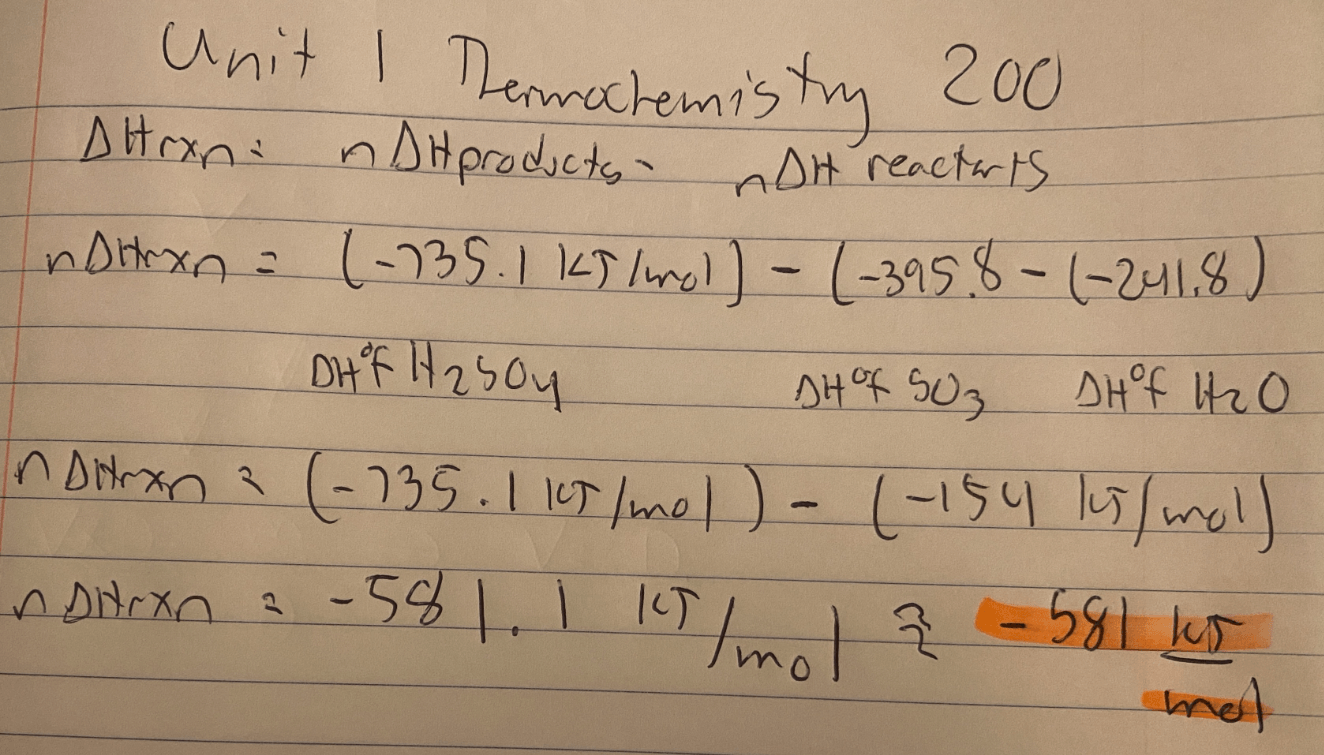 Unit 1 Thermochemistry 200
ΔHrxn = nΔHproducts - nΔH reactants
nΔHrxn = (-735.1 KJ/mol) - (-395.8 - (-241.8)
ΔH°f H2SO4 ΔH°f SO3 ΔH°f H2O
nΔHrxn = (-735.1 KJ/mol) - (-154 KJ/mol)
nΔHrxn = -581.1 KJ/mol ≈ -581 KJ/mol